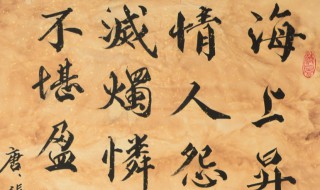 海上昇
情人怨
滅燭憐
不堪盈
唐、